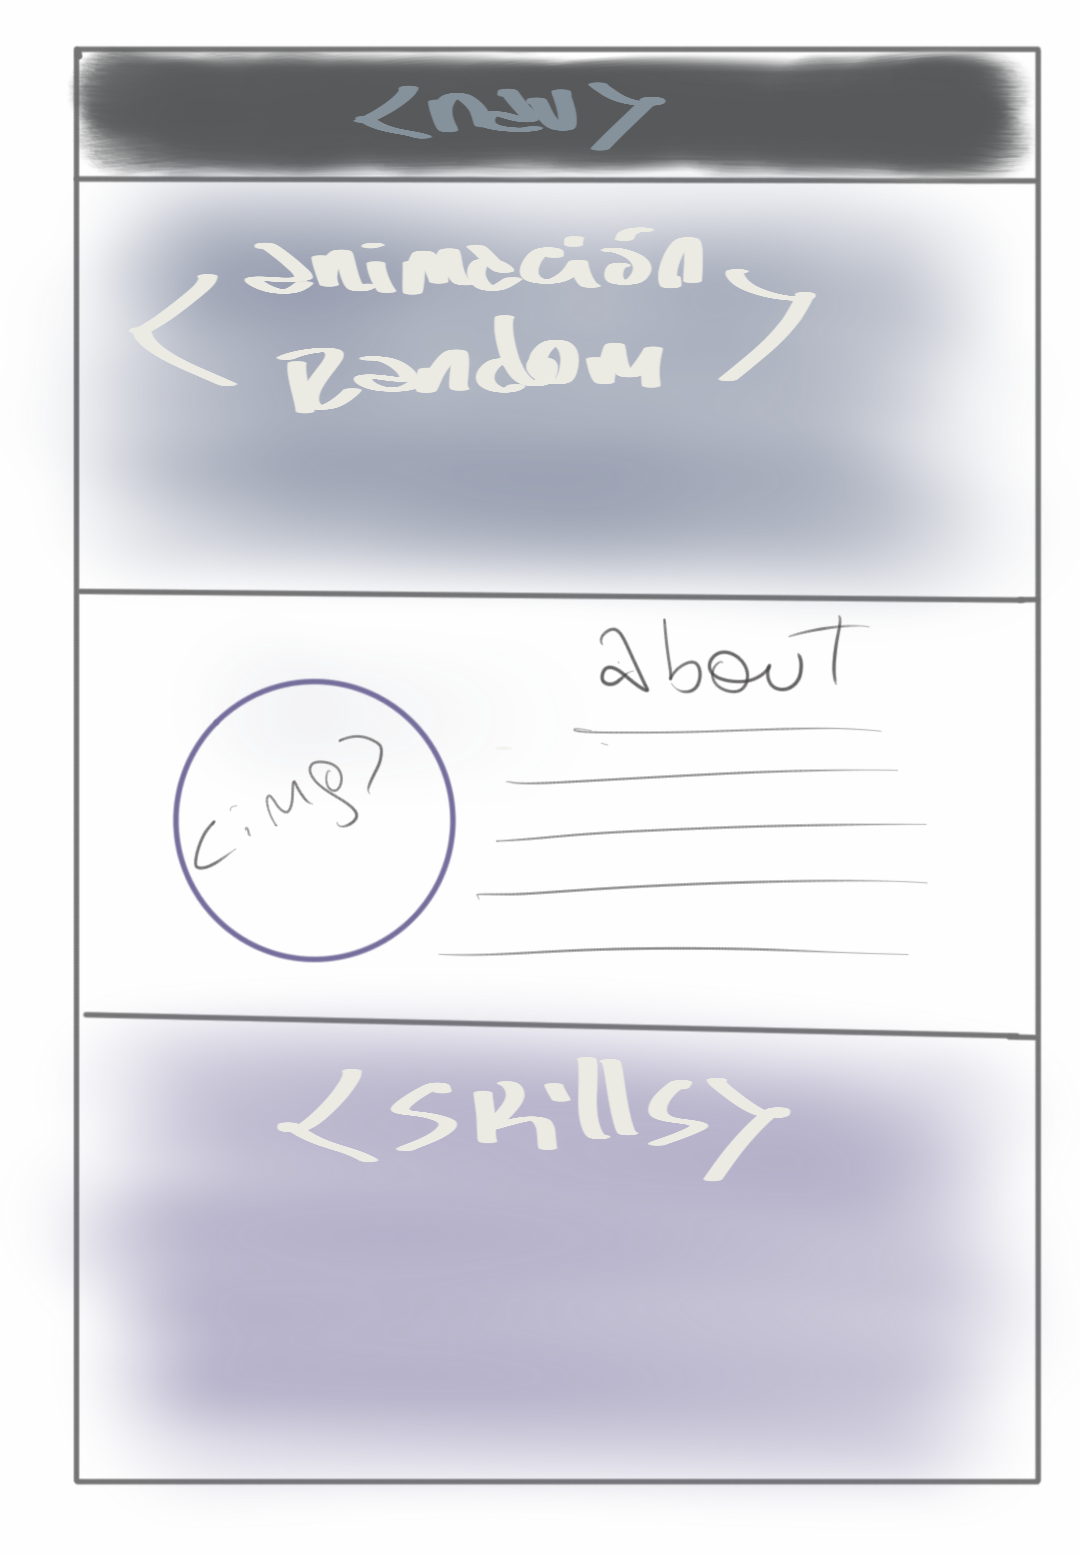 <nav>
<animación
Random>
about
<img>
<skills>